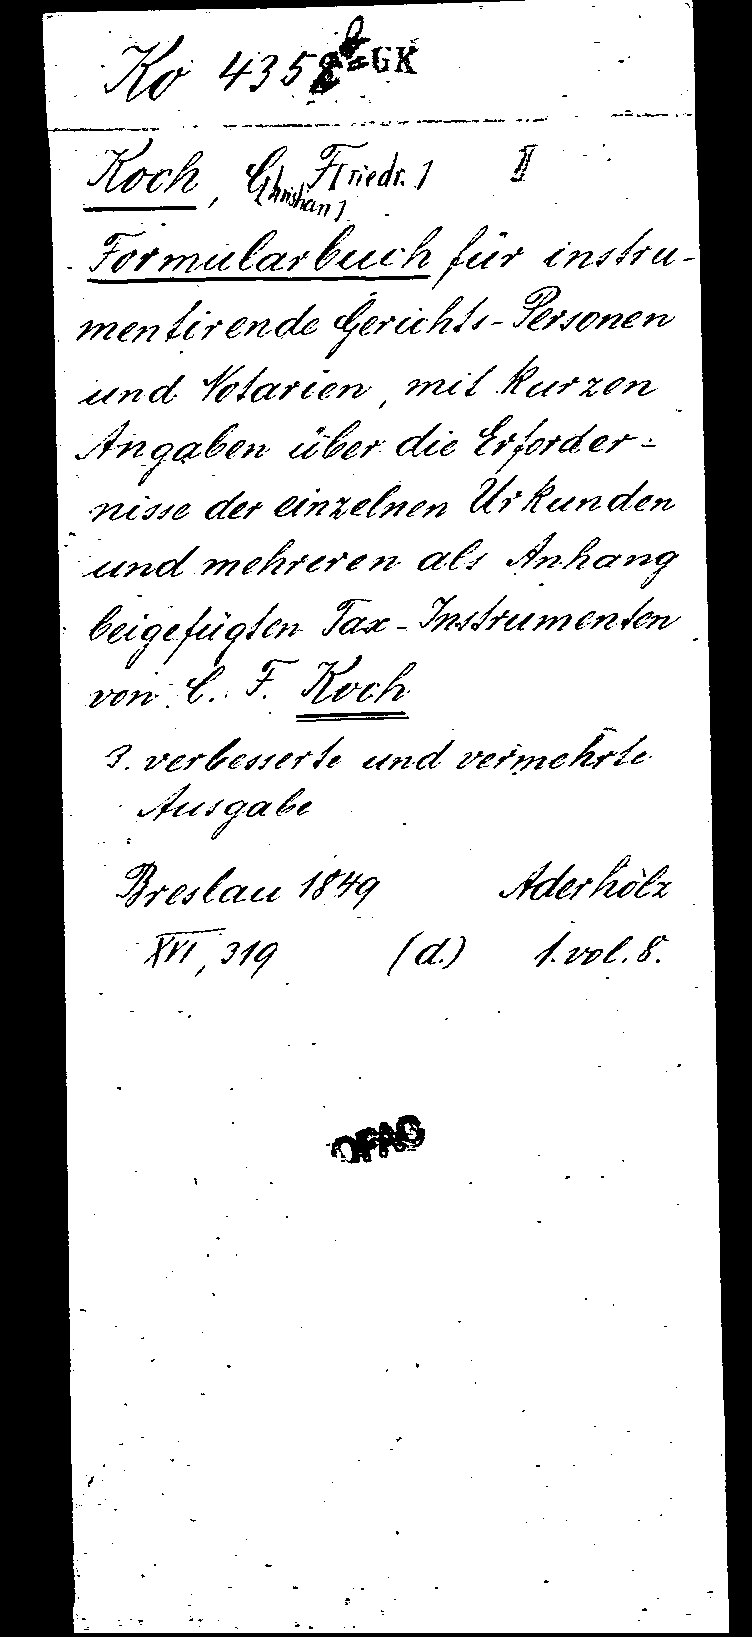 Ko 4358 =GK
Koch, C[hristian] F[riedr.] II
Formularbuch für instru-
mentirende Gerichts-Personen
und Notarien, mit kurzen
Angaben über die Erforder-
nisse der einzelnen Urkunden
und mehreren als Anhang
beigefügten Tax-Instrumenten
von C. F. Koch
3. verbesserte und vermehrte
Ausgabe
Breslau 1849 Aderholz
XVI, 319 (d.) 1. vol. 8.
DFAO